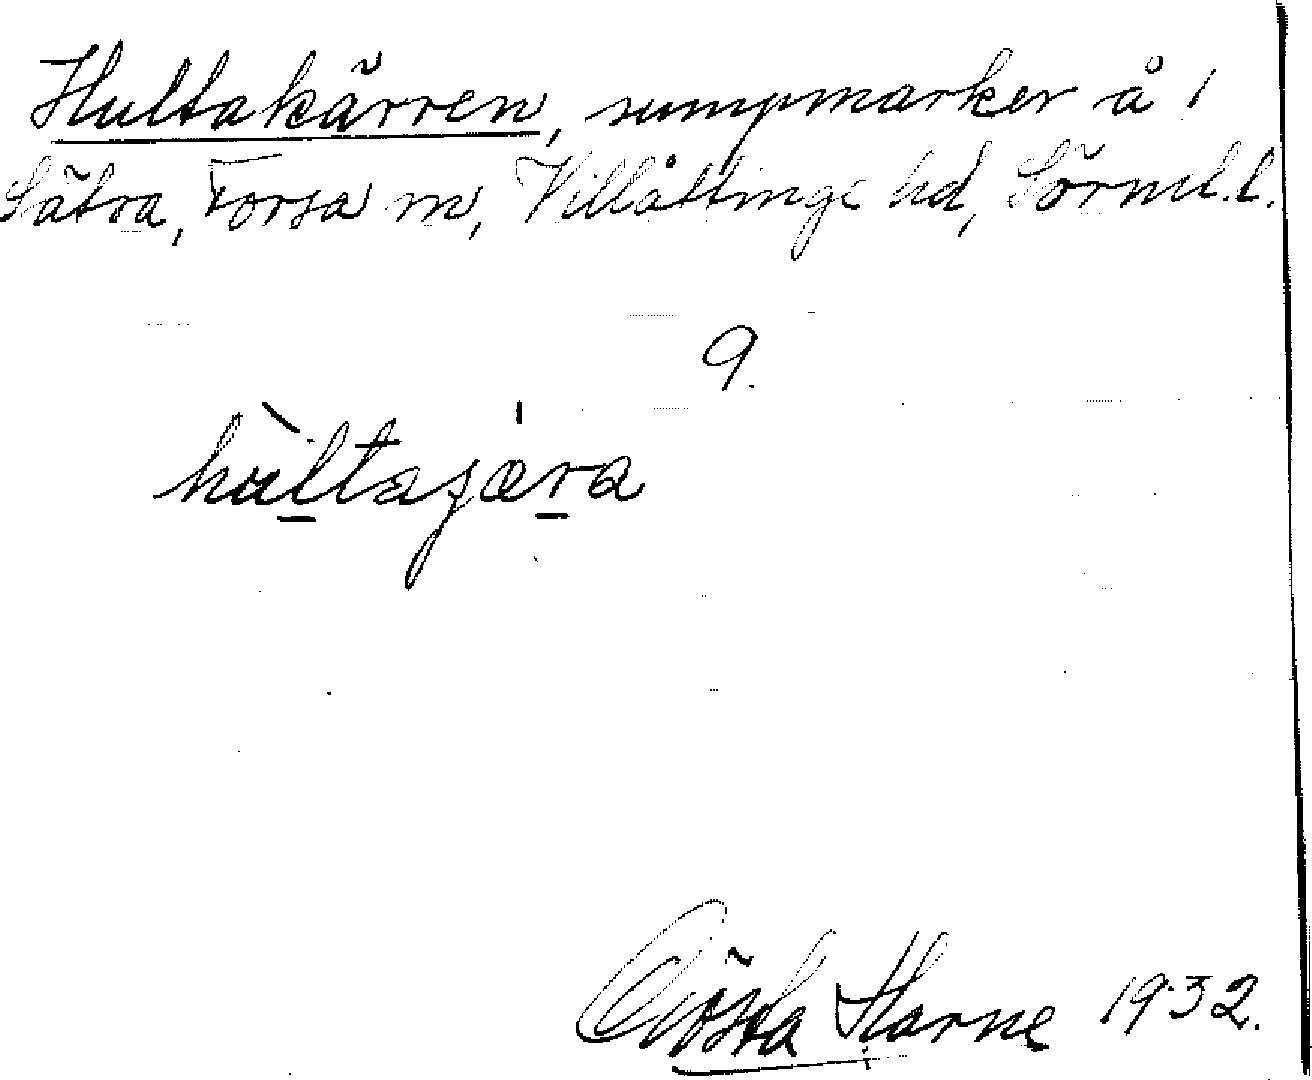 Hultakärren, sumpmarker å 1
Sätra, Forsa sn, Villåttinge hd, Sörml. l.
9.
hùltaȷæ̍ra
Gösta Harne 1932.